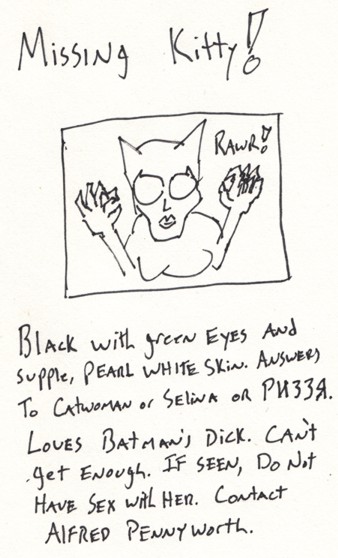 Missing Kitty!
RAWR!
Black with green Eyes and
supple, PEARL WHITE SKIN. Answers
To Catwoman or Selina or PИ33Я.
Loves Batman's Dick. Can't
get Enough. IF SEEN, Do Not
Have Sex with Her. Contact
Alfred Pennyworth.